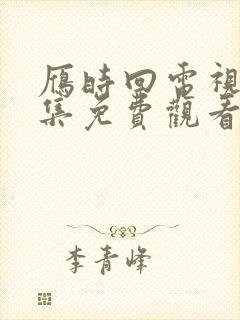 雁時回電視
集免費觀看
李青峰